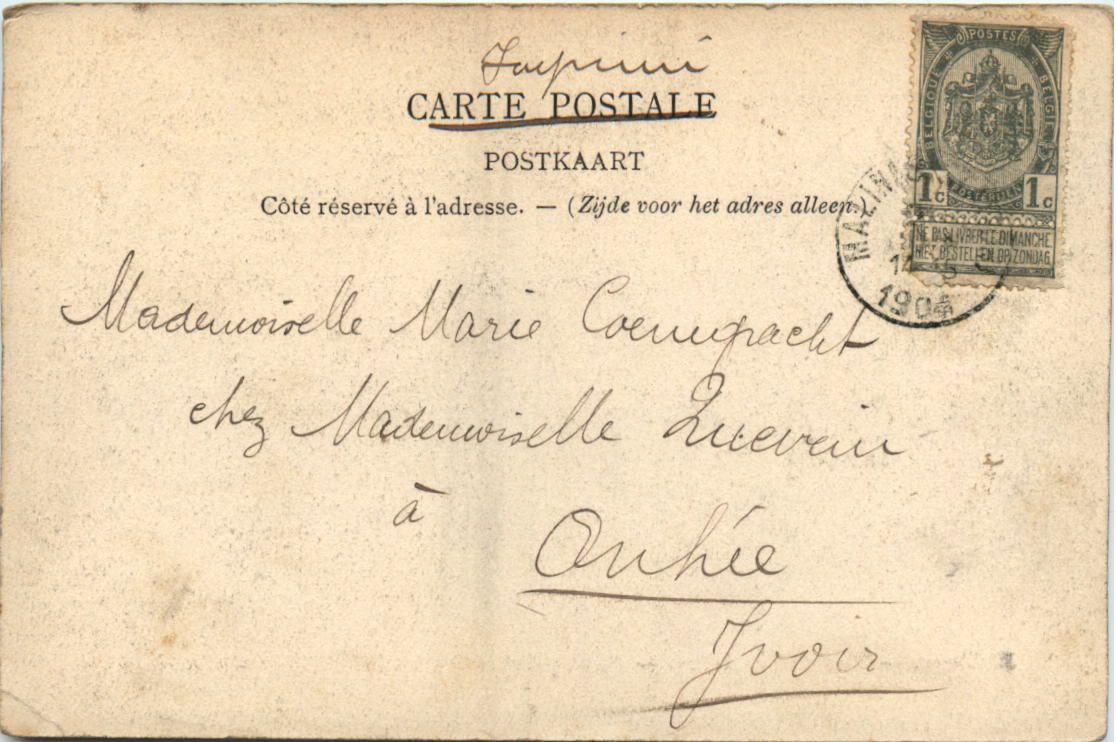 Imprimé
CARTE POSTALE
POSTKAART
Côté réservé à l'adresse. — (Zijde voor het adres alleen.)
POSTES
BELGIQUE BELGIË
1c 1c
NE PAS LIVRER LE DIMANCHE
NIET BESTELLEN OP ZONDAG
MALINES
1904
Mademoiselle Marie
chez Mademoiselle
à
Onhée
Yvoir